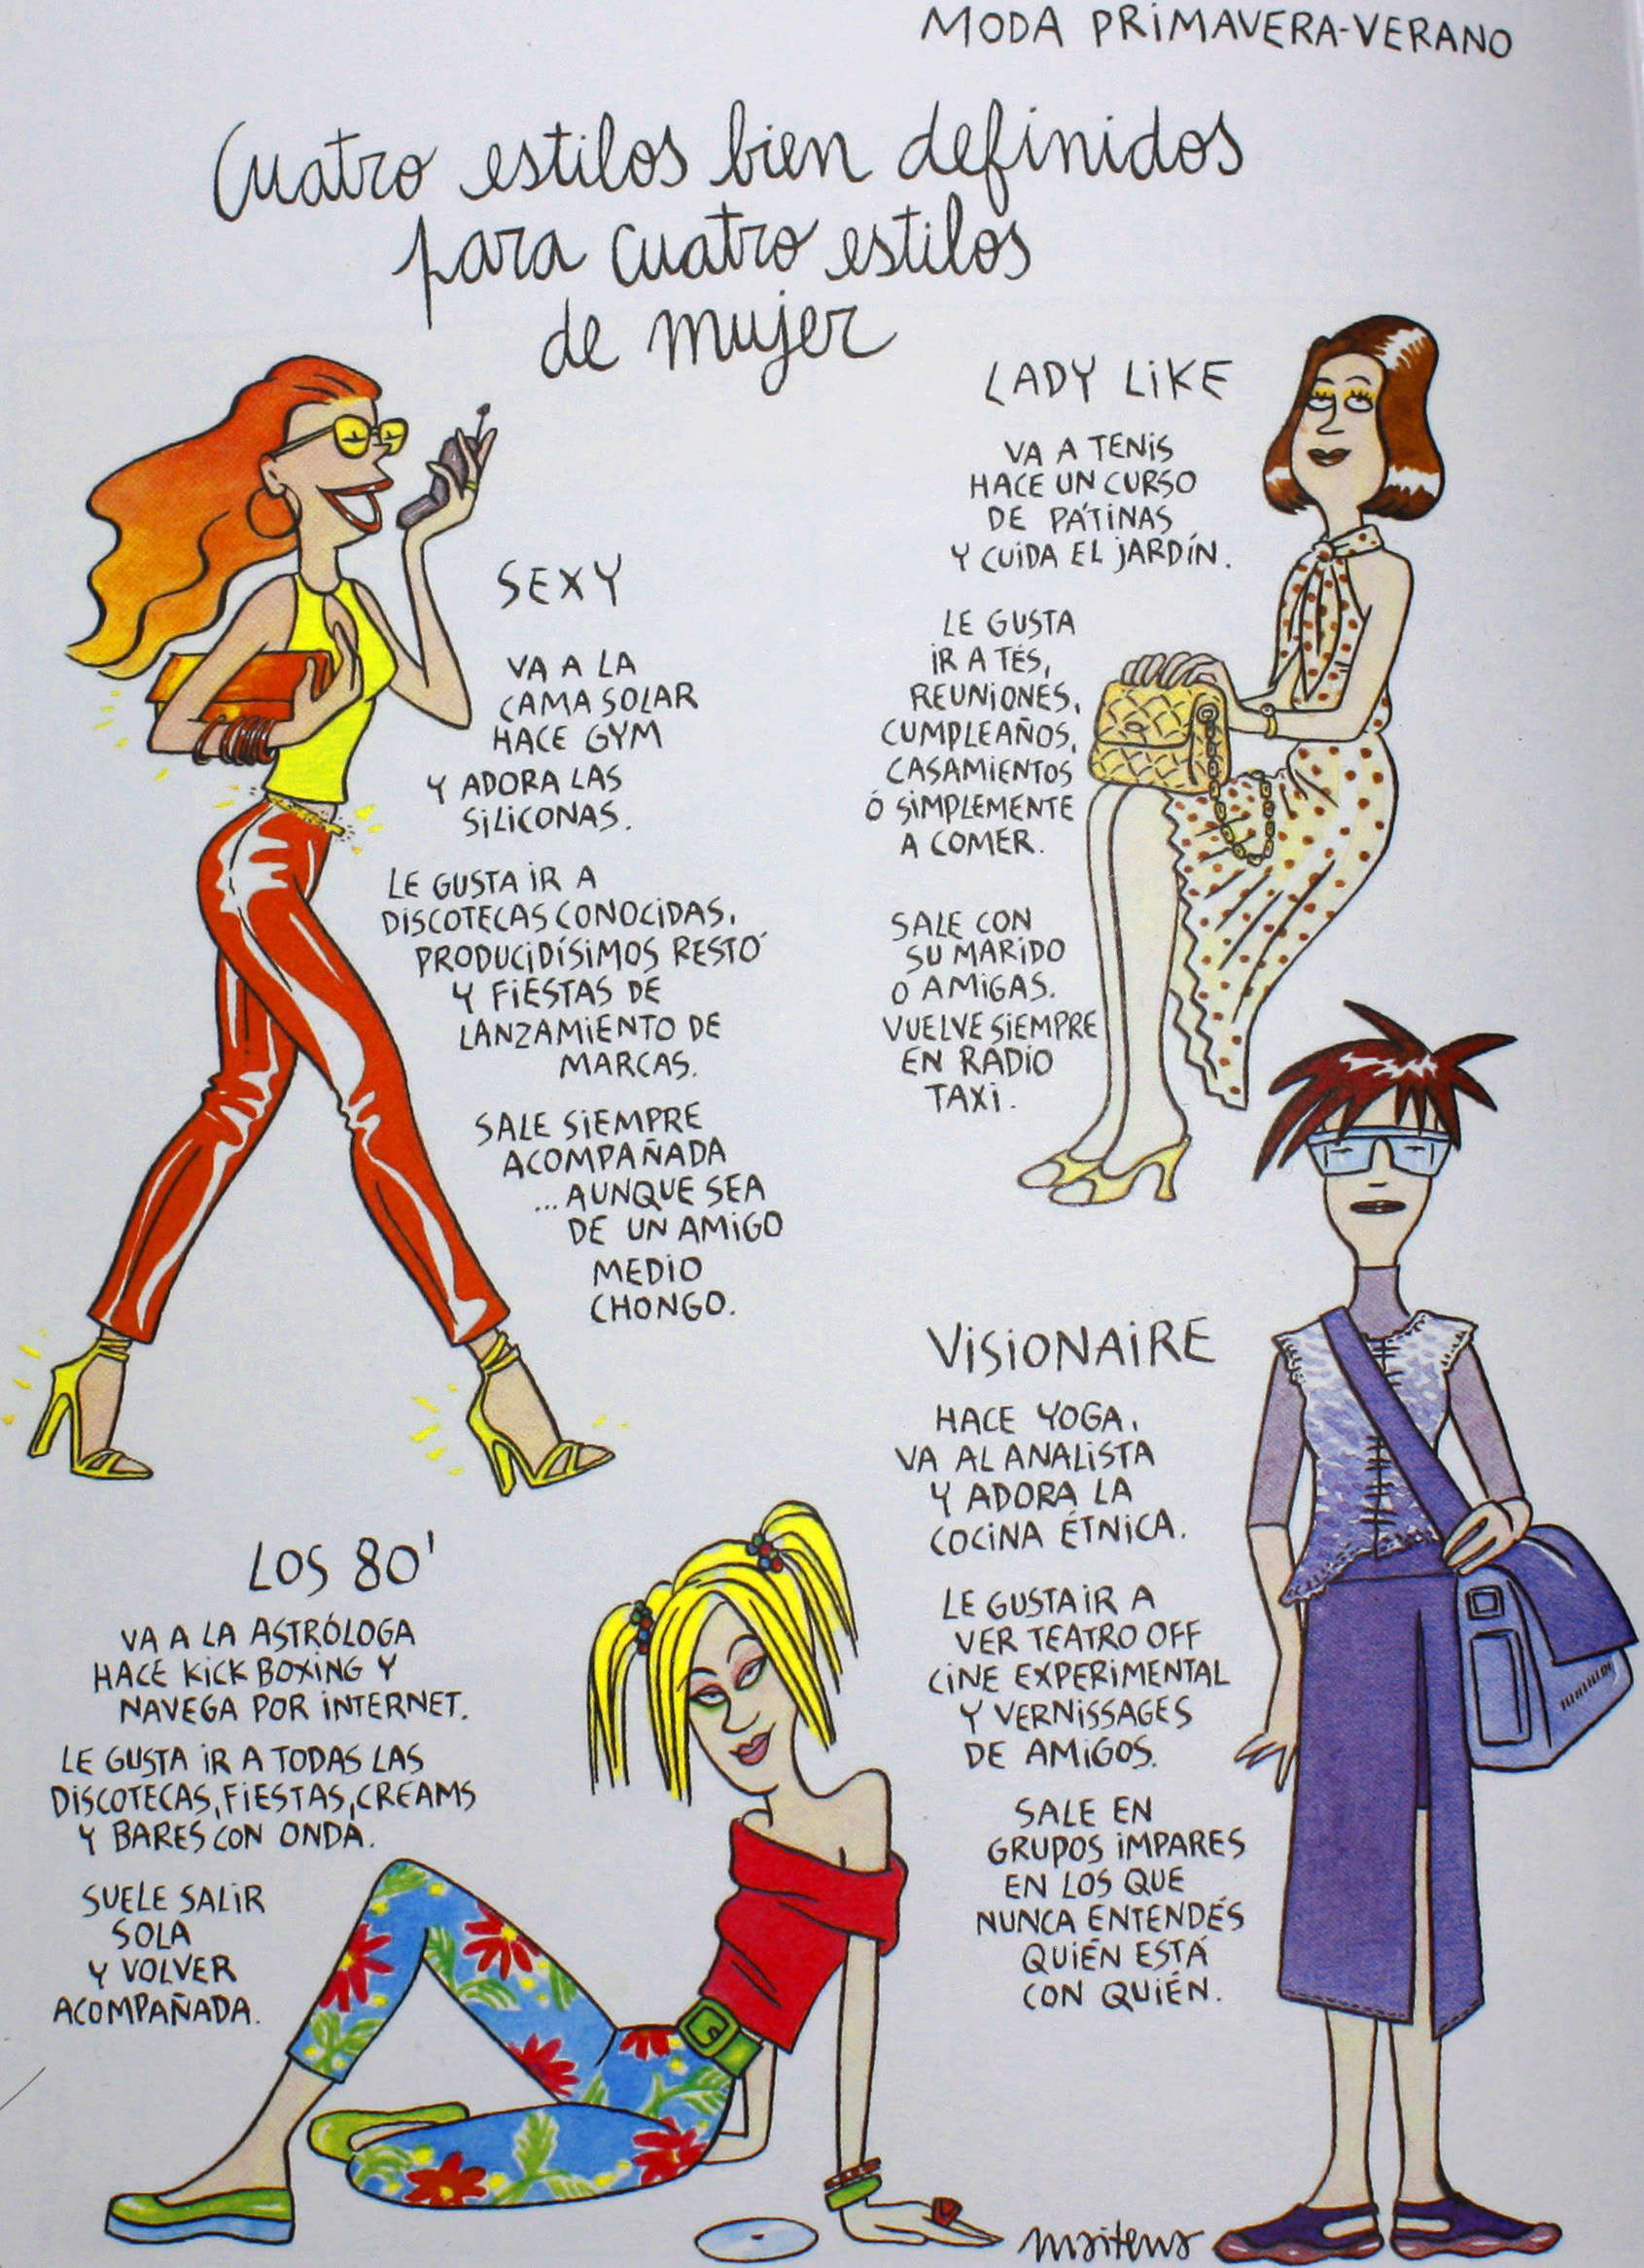 MODA PRIMAVERA-VERANO
Cuatro estilos bien definidos
para cuatro estilos
de mujer
SEXY
VA A LA
CAMA SOLAR
HACE GYM
Y ADORA LAS
SILICONAS.
LE GUSTA IR A
DISCOTECAS CONOCIDAS,
PRODUCIDÍSIMOS RESTÓ
Y FIESTAS DE
LANZAMIENTO DE
MARCAS.
SALE SIEMPRE
ACOMPAÑADA
...AUNQUE SEA
DE UN AMIGO
MEDIO
CHONGO.
LADY LIKE
VA A TENIS
HACE UN CURSO
DE PÁTINAS
Y CUIDA EL JARDÍN.
LE GUSTA
IR A TÉS,
REUNIONES,
CUMPLEAÑOS,
CASAMIENTOS
Ó SIMPLEMENTE
A COMER.
SALE CON
SU MARIDO
O AMIGAS.
VUELVE SIEMPRE
EN RADIO
TAXI.
LOS 80'
VA A LA ASTRÓLOGA
HACE KICK BOXING Y
NAVEGA POR INTERNET.
LE GUSTA IR A TODAS LAS
DISCOTECAS, FIESTAS, CREAMS
Y BARES CON ONDA.
SUELE SALIR
SOLA
Y VOLVER
ACOMPAÑADA.
VISIONAIRE
HACE YOGA,
VA AL ANALISTA
Y ADORA LA
COCINA ÉTNICA.
LE GUSTA IR A
VER TEATRO OFF
CINE EXPERIMENTAL
Y VERNISSAGES
DE AMIGOS.
SALE EN
GRUPOS IMPARES
EN LOS QUE
NUNCA ENTENDÉS
QUIÉN ESTÁ
CON QUIÉN.
maitena